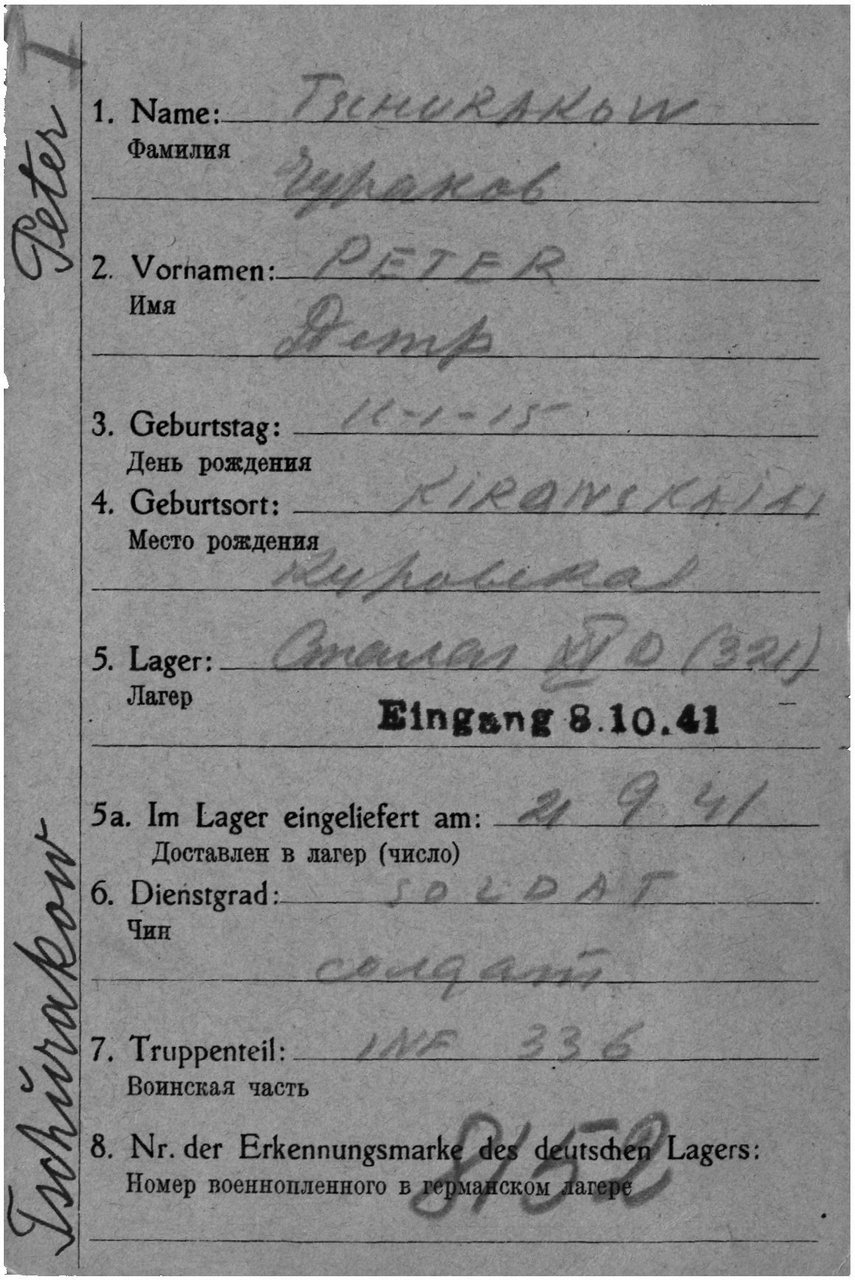 1. Name: TSCHURAKOW
Фамилия
Чураков
2. Vornamen: PETER
Имя
Петр
3. Geburtstag: 11-1-15
День рождения
4. Geburtsort:
Место рождения
5. Lager: Сталаг XI D (321)
Лагер
Eingang 8.10.41
5a. Im Lager eingeliefert am: 21 9 41
Доставлен в лагер (число)
6. Dienstgrad: SOLDAT
Чин
солдат
7. Truppenteil: INF 336
Воинская часть
8. Nr. der Erkennungsmarke des deutschen Lagers:
8152
Номер военнопленного в германском лагере
Tschŭrakow Peter